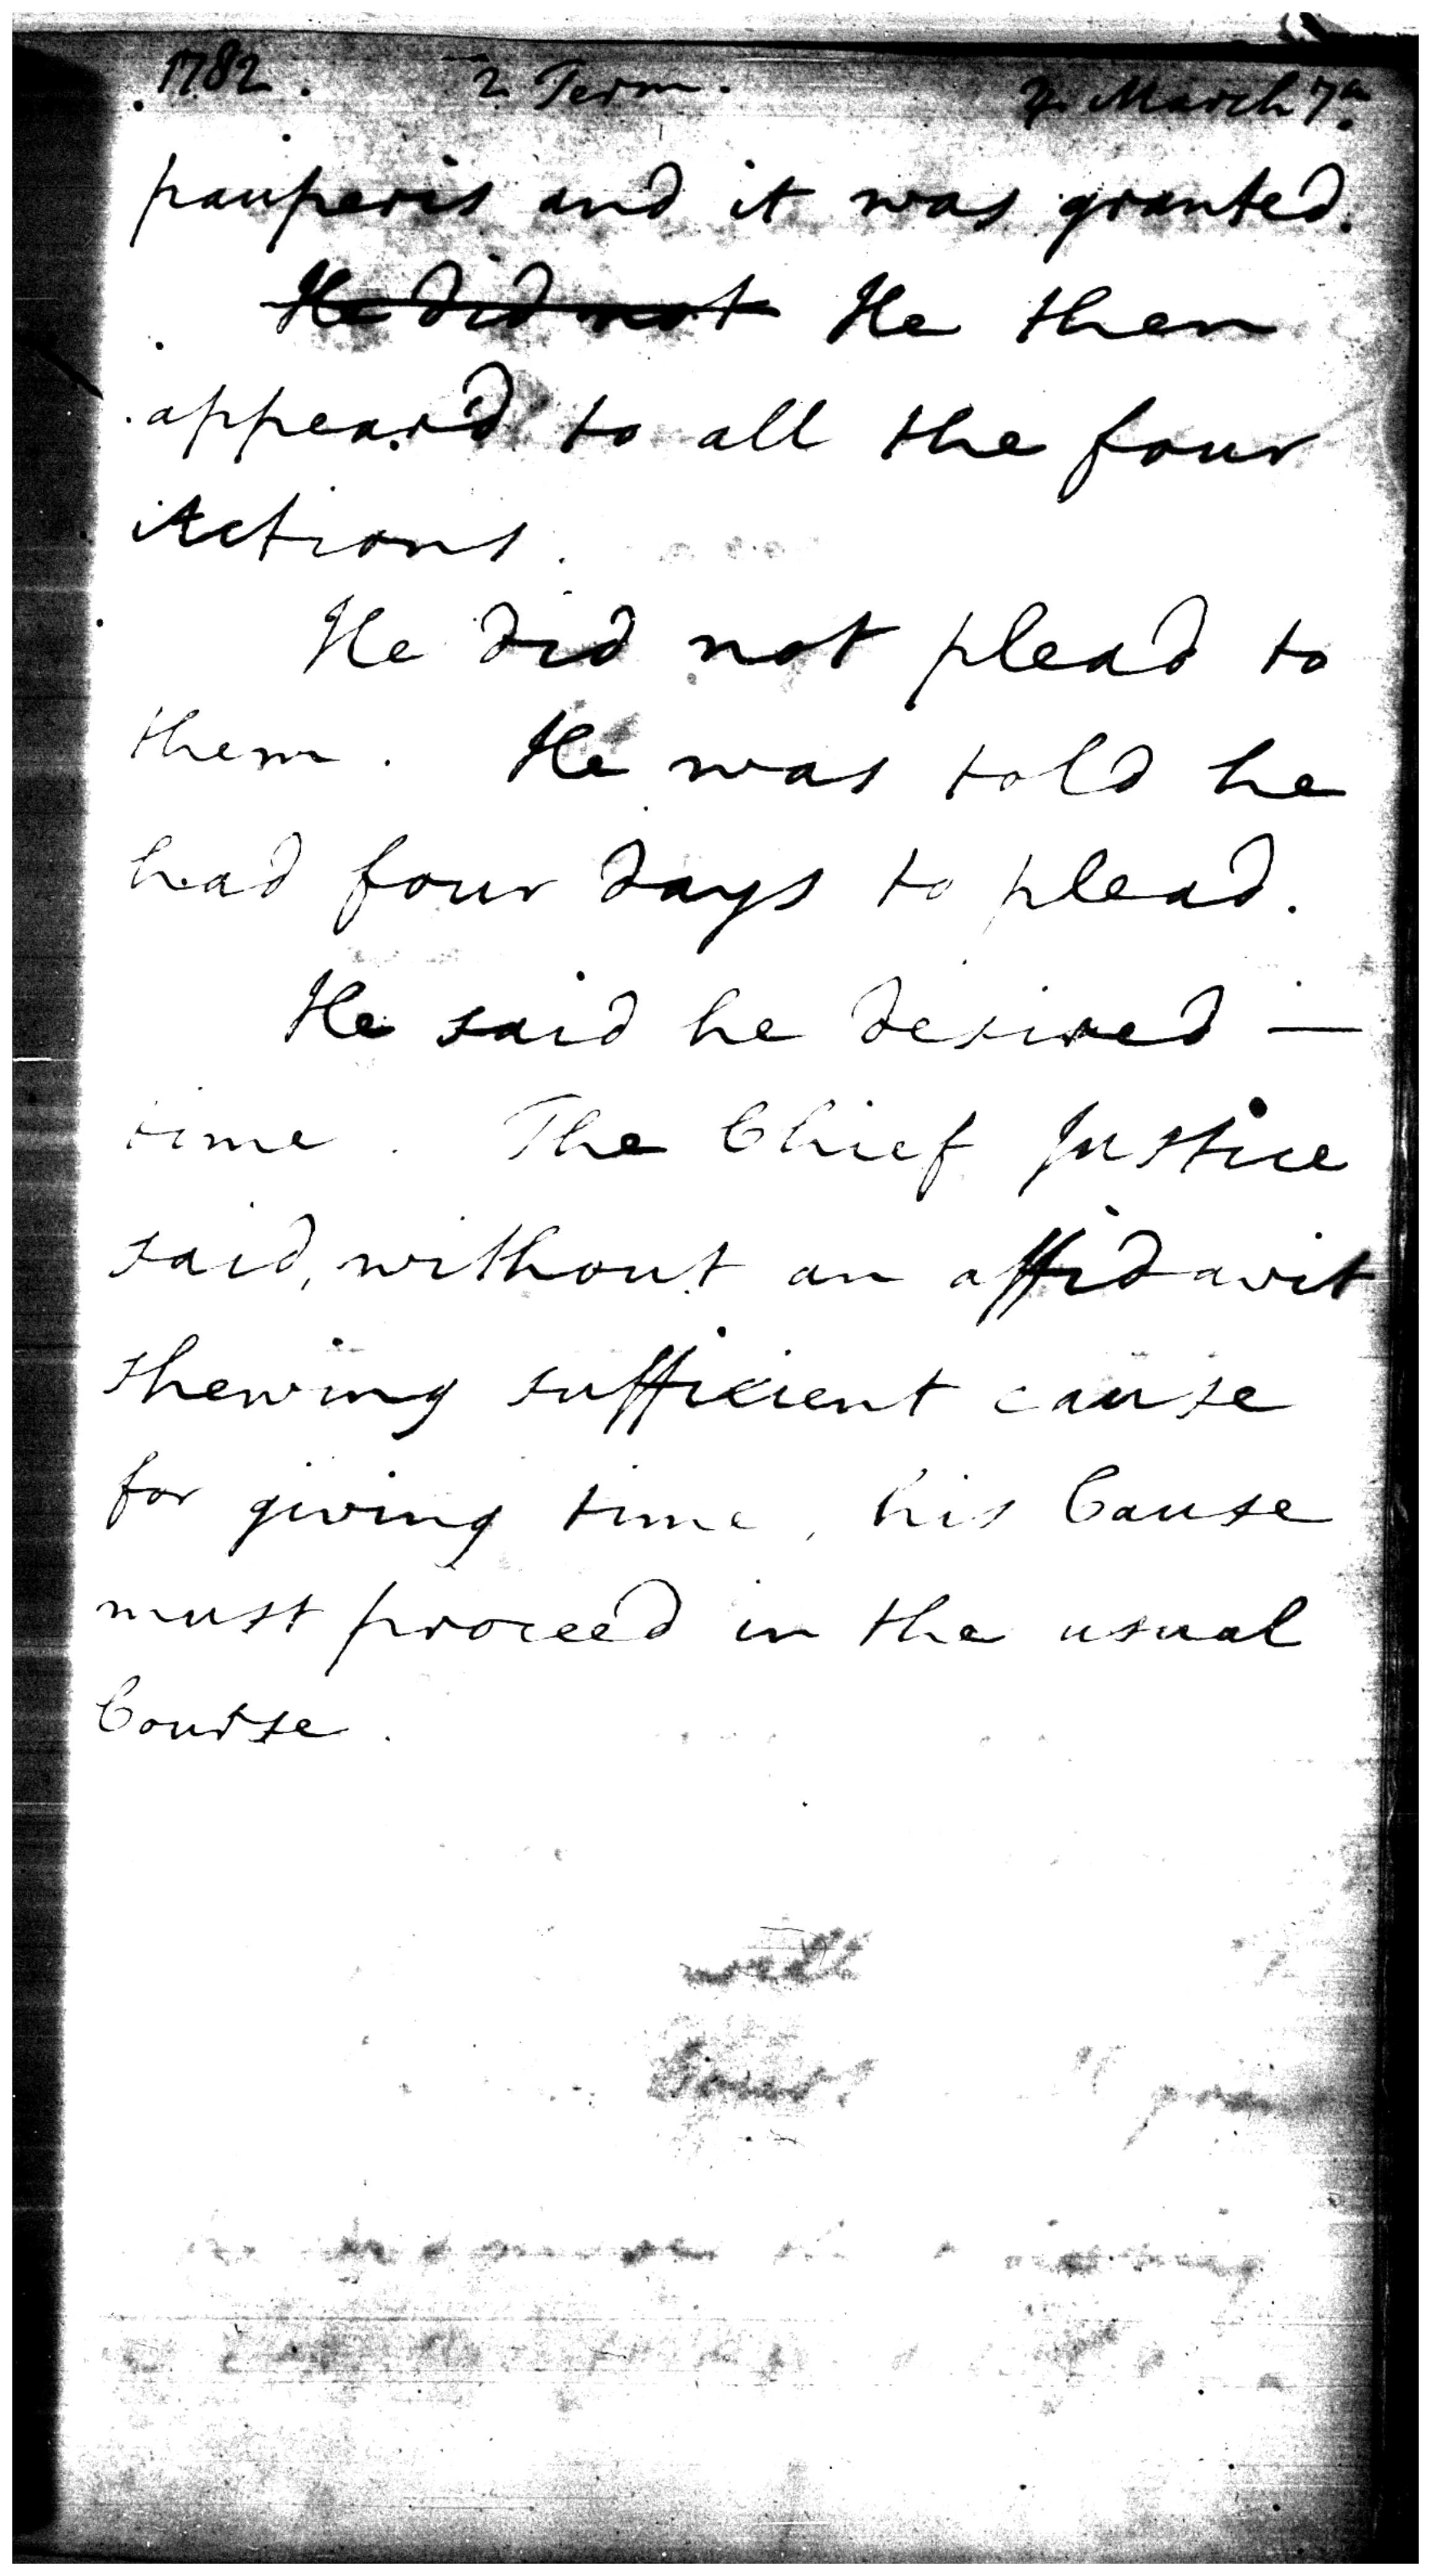 1782. 2 Term. March 7
pauperis and it was granted.
He did not He then
appear'd to all the four
Actions.
He did not plead to
them. He was told he
had four days to plead.
He said he desired —
time. The Chief Justice
said, without an affidavit
shewing sufficient cause
for giving time, his Cause
must proceed in the usual
Course.